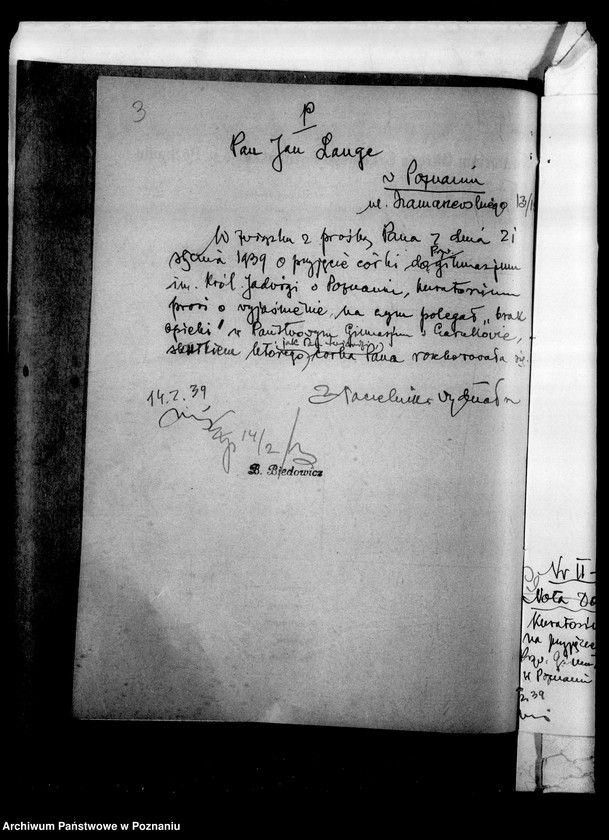 3
P
Pan Jan Lange
w Poznaniu
ul. Szamarzewskiego 13/
W związku z prośbą Pana z dnia 21
stycznia 1939 o przyjęcie córki do Pzw. gimnazjum
im. Król. Jadwigi w Poznaniu, Kuratorium
prosi o wyjaśnienie, na czym polegał „brak
opieki" w Państwowym Gimnazjum w Czarnkowie,
skutkiem którego, jak Pan twierdzi, córka Pana rozchorowała się.
Naczelnik Wydziału
14.2.39
14/2
B. Biedowicz
Nr II-
Nota Do
Kuratori
na przyjęcie
Pzw. Gimn
w Poznaniu
2.39
Archiwum Państwowe w Poznaniu